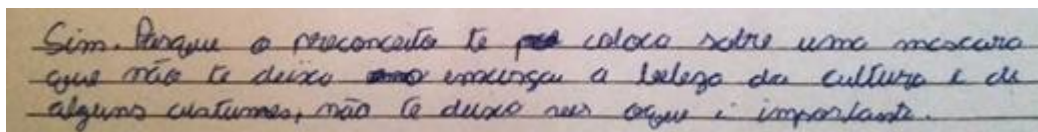 Sim. Porque o preconceito te coloca sobre uma mascara
que não te deixa emcergar a beleza da cultura e de
alguns custumes, não te deixa ver oque é importante.